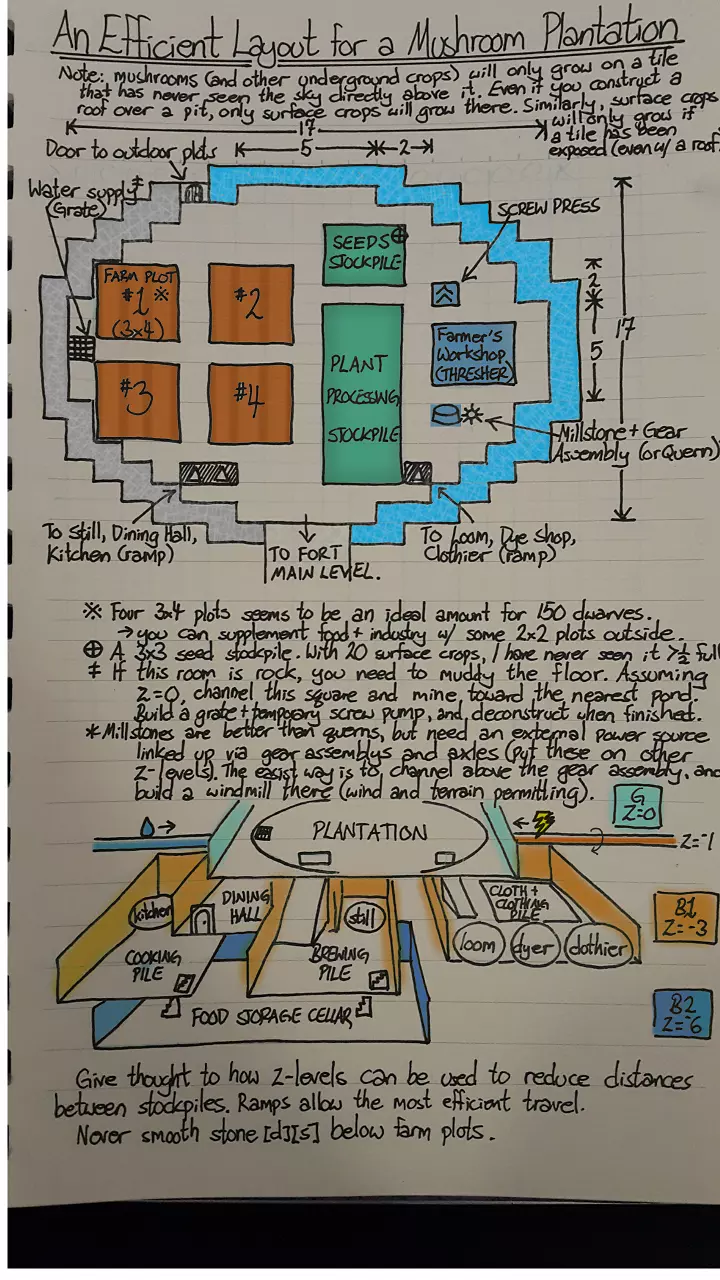 An Efficient Layout for a Mushroom Plantation
Note: mushrooms (and other underground crops) will only grow on a tile
that has never seen the sky directly above it. Even if you construct a
roof over a pit, only surface crops will grow there. Similarly, surface crops
will only grow if
a tile has been
exposed (even w/ a roof.
17
5
2
Door to outdoor plots
Water supply ‡
(Grate)
SCREW PRESS
SEEDS ⊕
STOCKPILE
FARM PLOT
#1 ※
(3x4)
#2
2
17
5
Farmer's
Workshop
(THRESHER)
PLANT
PROCESSING
STOCKPILE
#3
#4
Millstone + Gear
Assembly (or Quern)
To Still, Dining Hall,
Kitchen (ramp)
TO FORT
MAIN LEVEL.
To Loom, Dye Shop,
Clothier (ramp)
※ Four 3x4 plots seems to be an ideal amount for 150 dwarves.
→ you can supplement food + industry w/ some 2x2 plots outside.
⊕ A 3x3 seed stockpile. With 20 surface crops, I have never seen it >½ full
‡ If this room is rock, you need to muddy the floor. Assuming
Z=0, channel this square and mine toward the nearest pond.
Build a grate + temporary screw pump, and deconstruct when finished.
* Millstones are better than querns, but need an external power source
linked up via gear assemblys and axles (put these on other
Z-levels). The easist way is to channel above the gear assembly, and
build a windmill there (wind and terrain permitting).
G
Z=0
PLANTATION
Z=-1
kitchen
DINING
HALL
still
CLOTH +
CLOTHING
PILE
B1
Z=-3
loom
dyer
clothier
COOKING
PILE
BREWING
PILE
B2
Z=-6
FOOD STORAGE CELLAR
Give thought to how z-levels can be used to reduce distances
between stockpiles. Ramps allow the most efficient travel.
Never smooth stone [d][s] below farm plots.